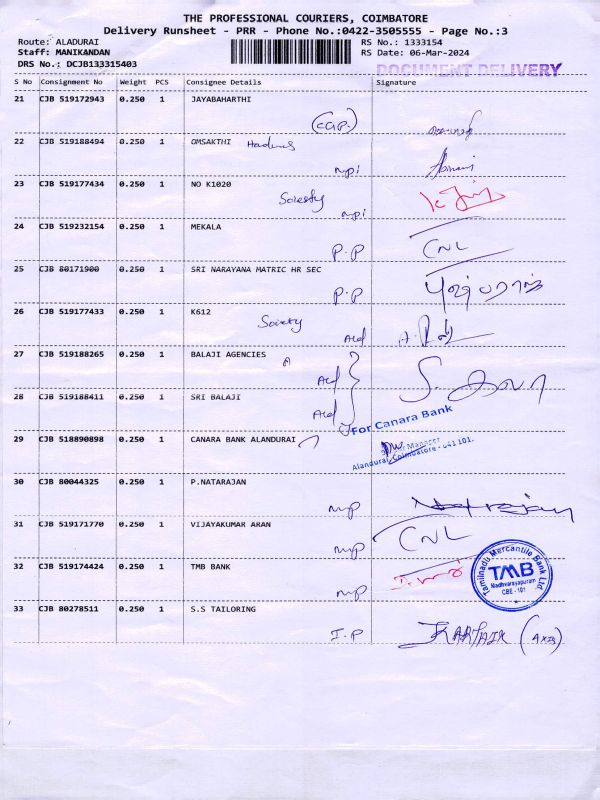 THE PROFESSIONAL COURIERS, COIMBATORE
Delivery Runsheet - PRR - Phone No.:0422-3505555 - Page No.:3
Route: ALADURAI
RS No.: 1333154
Staff: MANIKANDAN
RS Date: 06-Mar-2024
DRS No.: DCJB133315403
DOCUMENT DELIVERY
S No Consignment No Weight PCS Consignee Details Signature
21 CJB 519172943 0.250 1 JAYABAHARTHI
22 CJB 519188494 0.250 1 OMSAKTHI
npi
23 CJB 519177434 0.250 1 NO K1020
npi
24 CJB 519232154 0.250 1 MEKALA
P.P CNL
25 CJB 80171900 0.250 1 SRI NARAYANA MATRIC HR SEC
P.P
26 CJB 519177433 0.250 1 K612
Soiety
Ald
27 CJB 519188265 0.250 1 BALAJI AGENCIES
Ald
28 CJB 519188411 0.250 1 SRI BALAJI
Ald
For Canara Bank
29 CJB 518890898 0.250 1 CANARA BANK ALANDURAI
Manager
Alandurai, Coimbatore - 641 101.
30 CJB 80044325 0.250 1 P.NATARAJAN
mp Natrajan
31 CJB 519171770 0.250 1 VIJAYAKUMAR ARAN
mp CNL
32 CJB 519174424 0.250 1 TMB BANK
mp
Tamilnadu Mercantile Bank Ltd.
TMB
Madhvarayapuram
CBE - 101
33 CJB 80278511 0.250 1 S.S TAILORING
I.P KARTHIK (AXIS)